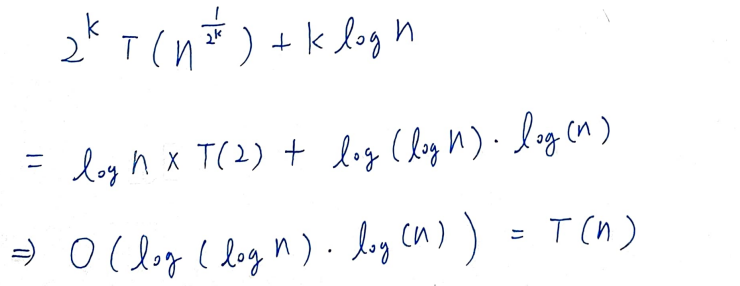 2^k T(n^{1/2^k}) + k log n
= log n × T(2) + log(log n) · log(n)
⇒ O(log(log n) · log(n)) = T(n)